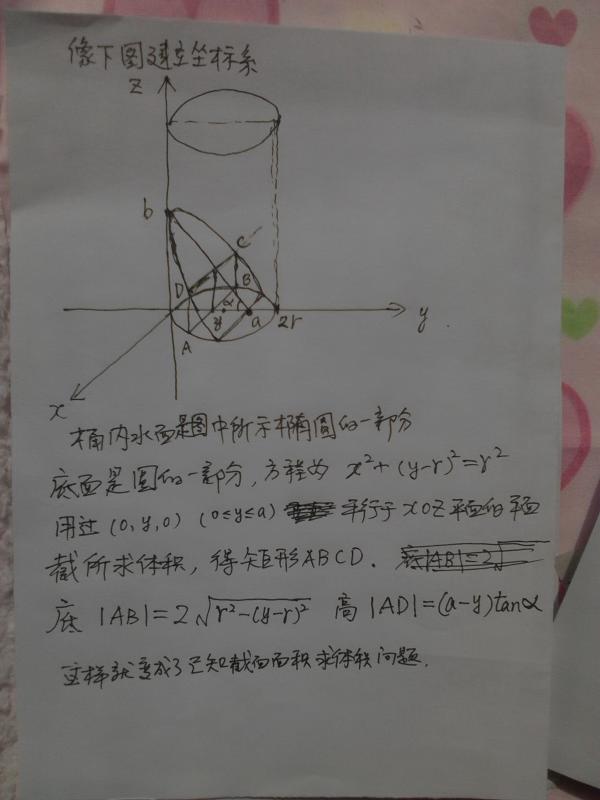 像下图建立坐标系
z
b
C
D
B
α
A
y
a
2r
y
x
桶内水面是图中所示椭圆的一部分
底面是圆的一部分，方程为 x²+(y-r)²=r²
用过 (0,y,0) (0≤y≤a) 平行于 xoz平面的平面
截所求体积，得矩形ABCD.
底 |AB|=2√r²-(y-r)² 高 |AD|=(a-y)tanα
这样就变成了已知截面面积求体积问题.